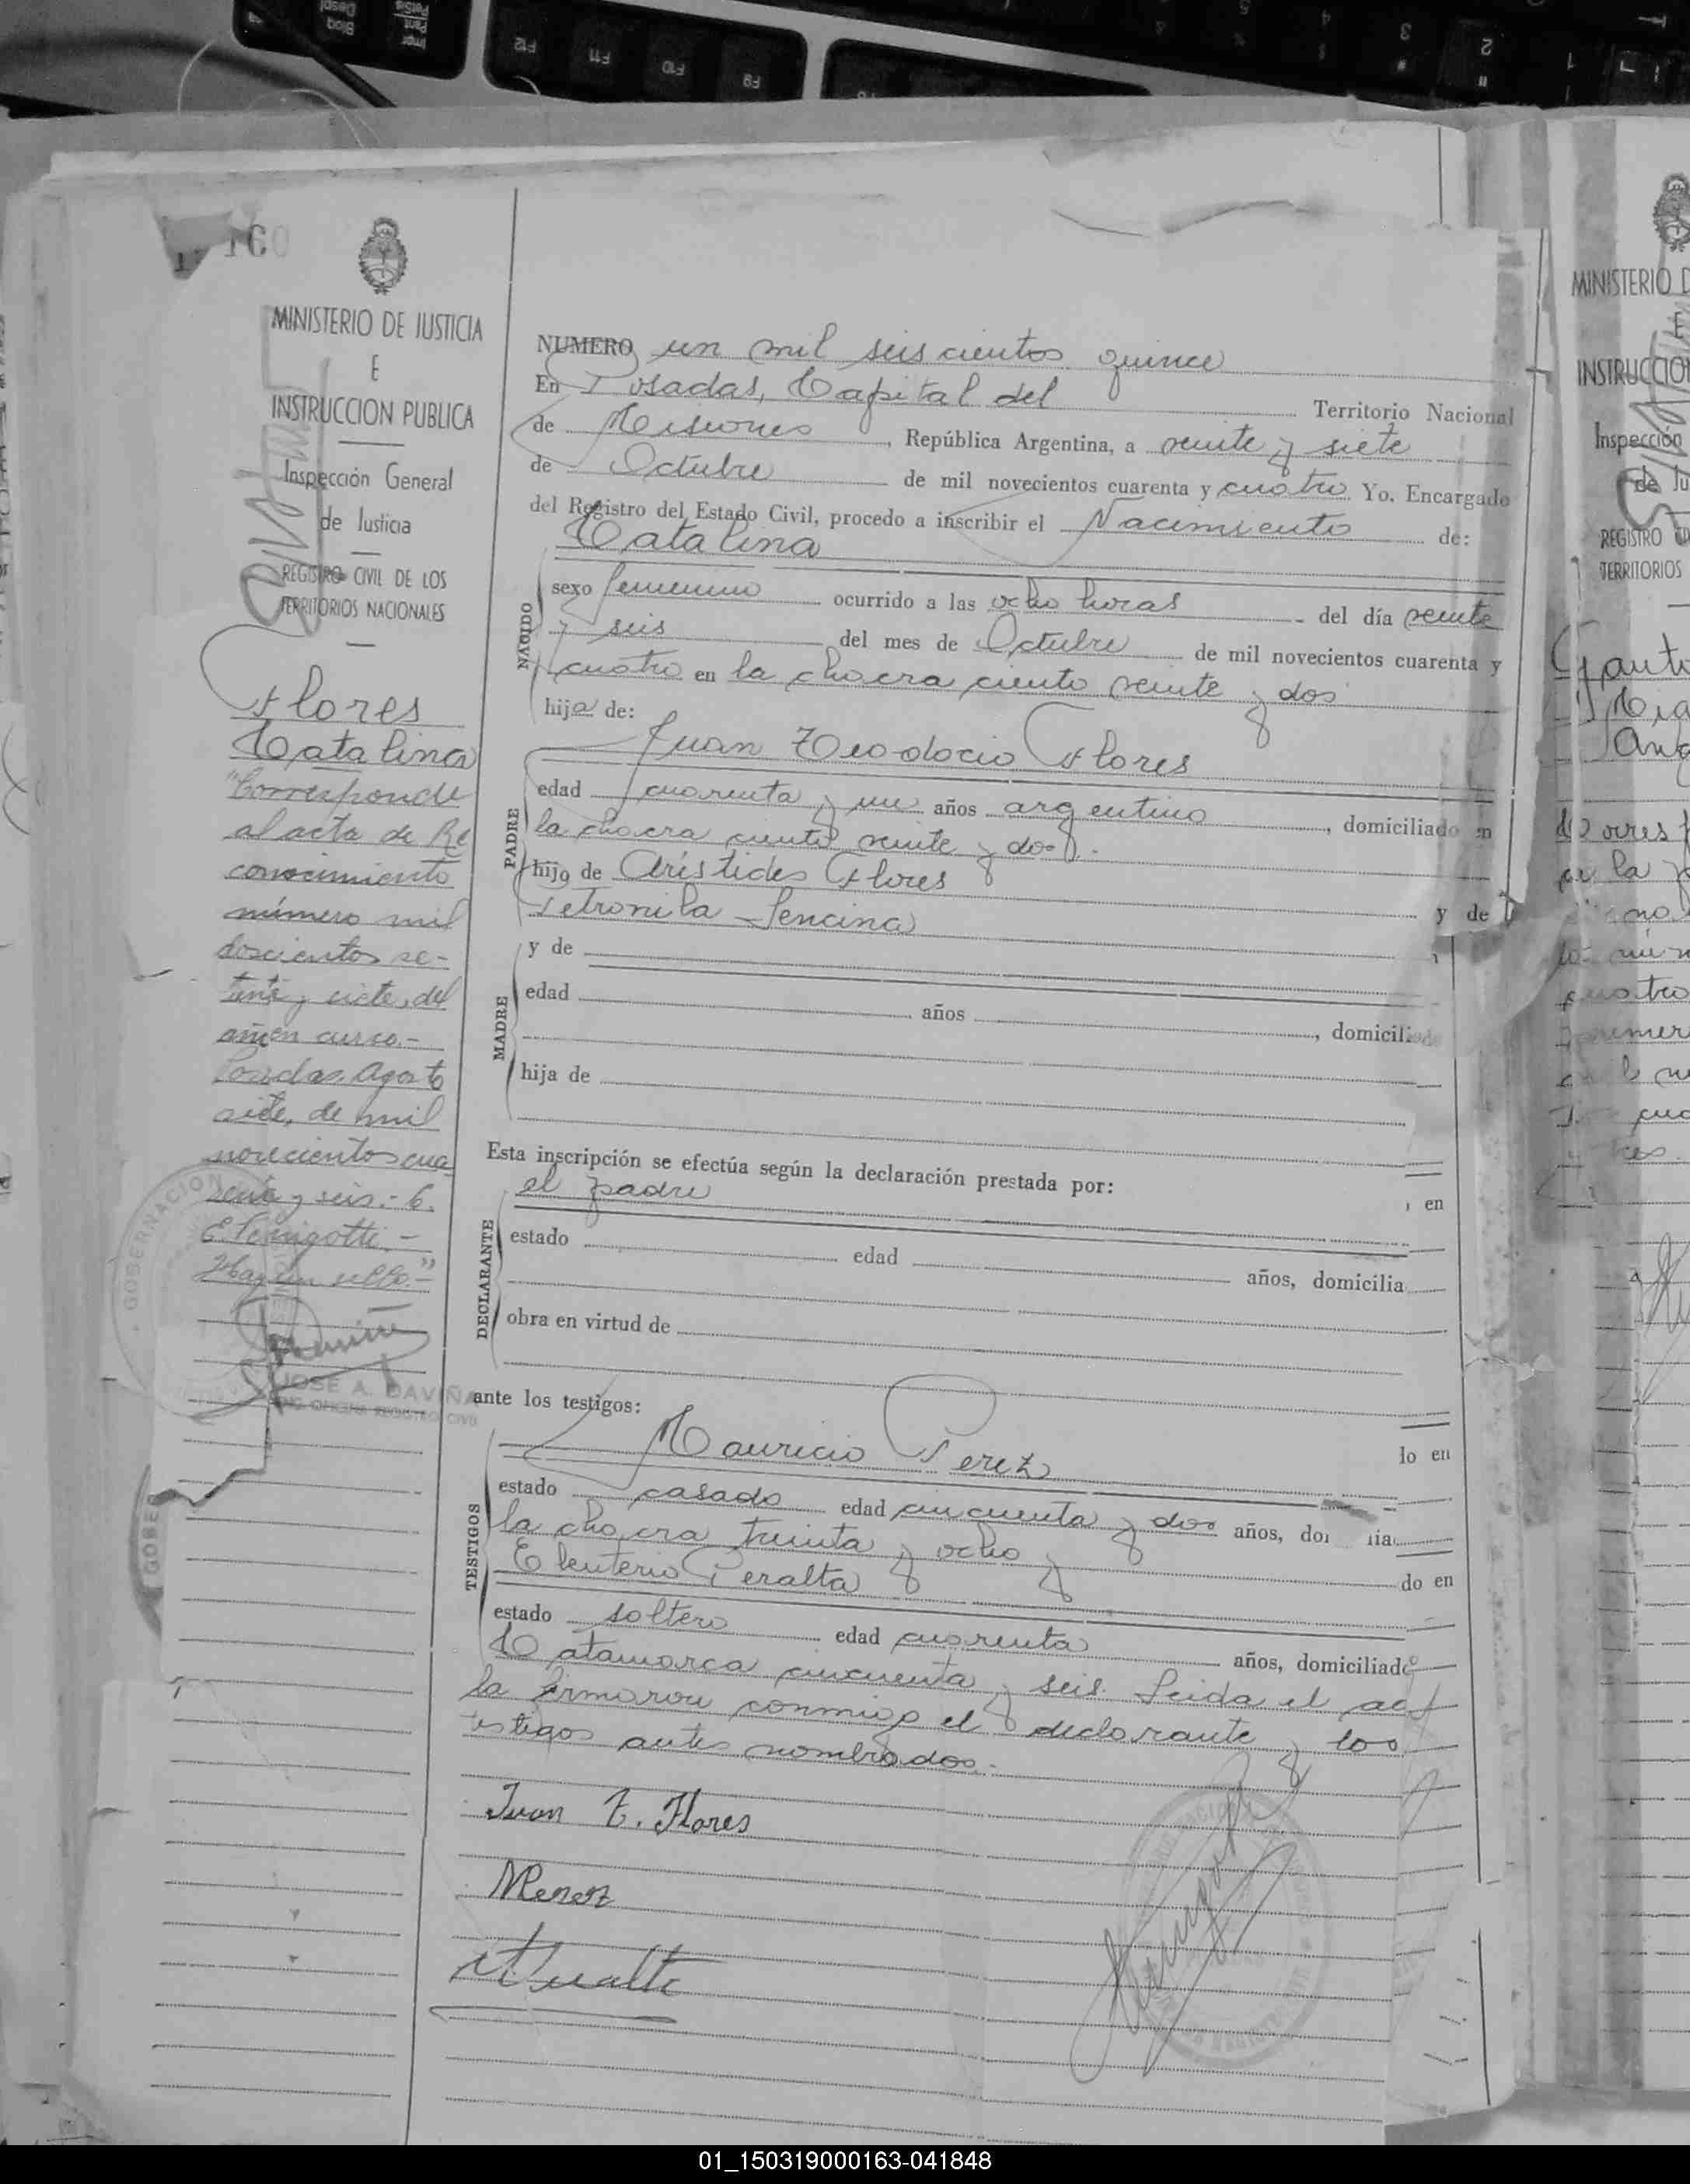 160
MINISTERIO DE JUSTICIA
E
INSTRUCCION PUBLICA
Inspección General
de Justicia
REGISTRO CIVIL DE LOS
TERRITORIOS NACIONALES
Flores
Catalina
"Corresponde
al acta de Re
conocimiento
número mil
doscientos se-
tenta y siete, del
año en curso.-
Posadas, Agosto
siete, de mil
novecientos cua
renta y seis.- 6.
Hay un sello.-"
JOSE A. DAVIÑA
NUMERO un mil seiscientos quince
En Posadas, Capital del Territorio Nacional
de Misiones, República Argentina, a veinte y siete
de Octubre de mil novecientos cuarenta y cuatro Yo, Encargado
del Registro del Estado Civil, procedo a inscribir el Nacimiento de:
Catalina
NACIDO
sexo femenino ocurrido a las ocho horas del día veinte
y seis del mes de Octubre de mil novecientos cuarenta y
cuatro en la chacra ciento veinte y dos
hija de:
Juan Teodocio Flores
PADRE
edad cuarenta y un años argentino, domiciliado en
la chacra ciento veinte y dos.-
hijo de Arístides Flores
y de
Petronila Lencina
y de
MADRE
edad años, domiciliada
hija de
Esta inscripción se efectúa según la declaración prestada por:
el padre
en
DECLARANTE
estado edad años, domicilia
obra en virtud de
ante los testigos:
Mauricio Perez
lo en
TESTIGOS
estado casado edad cincuenta y dos años, domicilia
la chacra treinta y ocho y
Eleuterio Peralta
do en
estado soltero edad cuarenta años, domiciliado
Catamarca cincuenta y seis. Leida el acta
la firmaron conmigo el declarante y los
testigos antes nombrados.-
Juan T. Flores
MPerez
01_150319000163-041848